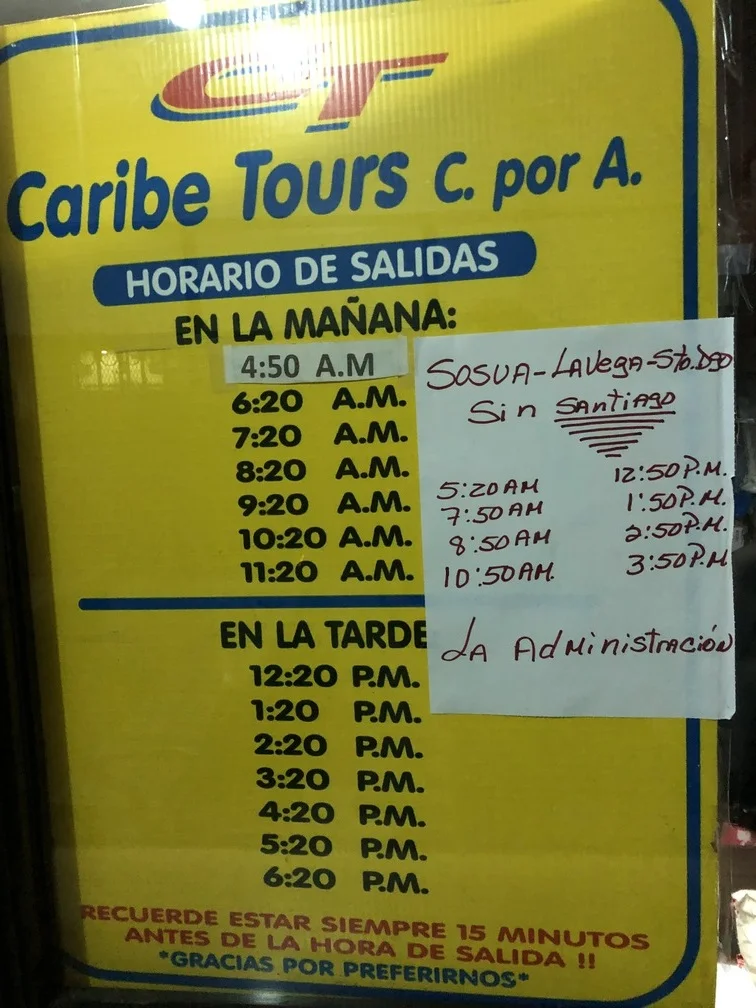 CT
Caribe Tours C. por A.
HORARIO DE SALIDAS
EN LA MAÑANA:
4:50 A.M
6:20 A.M.
7:20 A.M.
8:20 A.M.
9:20 A.M.
10:20 A.M.
11:20 A.M.
EN LA TARDE
12:20 P.M.
1:20 P.M.
2:20 P.M.
3:20 P.M.
4:20 P.M.
5:20 P.M.
6:20 P.M.
RECUERDE ESTAR SIEMPRE 15 MINUTOS
ANTES DE LA HORA DE SALIDA !!
*GRACIAS POR PREFERIRNOS*
SOSUA-LAVEGA-Sto.DGO
Sin SANTIAGO
5:20 AM 12:50 P.M.
7:50 AM 1:50 P.M.
8:50 AM 2:50 P.M.
10:50 AM. 3:50 P.M
LA Administración